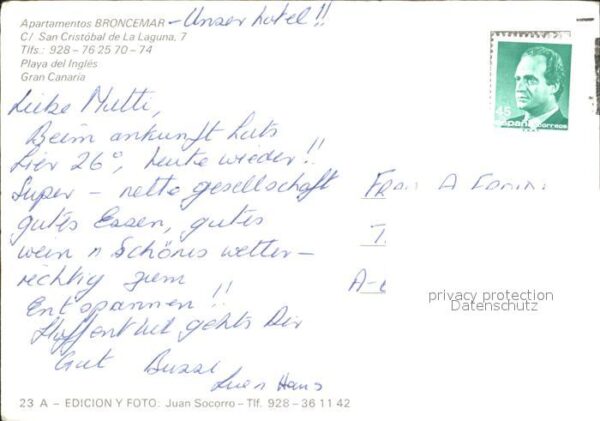 Apartamentos BRONCEMAR – Unser hotel!!
C/ San Cristóbal de La Laguna, 7
Tlfs.: 928 – 76 25 70 – 74
Playa del Inglés
Gran Canaria
45
España correos
Liebe Mutti,
Beim ankunft hats
hier 26°, heute wieder!!
Super – nette gesellschaft
gutes Essen, gutes
wein n Schönes wetter –
richtig zum
Entspannen!!
Hoffentlich gehts Dir
Gut Bussi
Hans
Frau A
A-
privacy protection
Datenschutz
23 A – EDICION Y FOTO: Juan Socorro – Tlf. 928 – 36 11 42